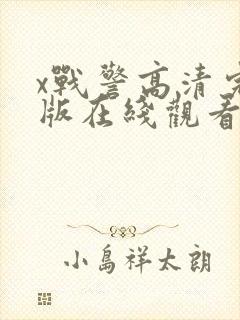 x戰警高清完
版在綫觀看
小島祥太朗